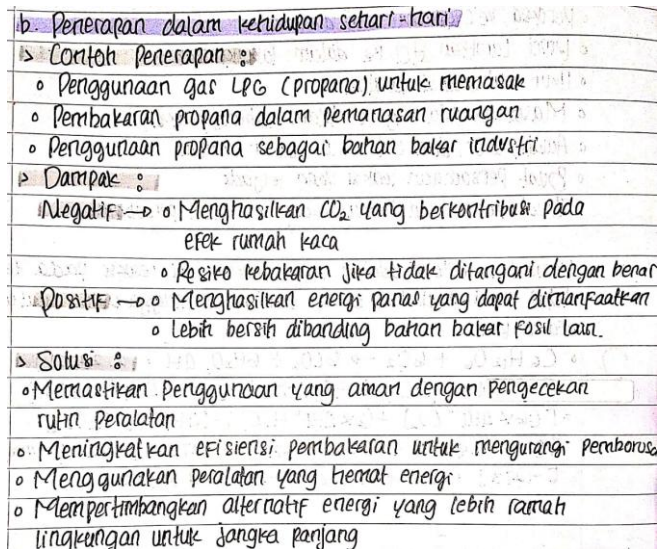 b. Penerapan dalam kehidupan sehari-hari
▷ Contoh Penerapan :
• Penggunaan gas LPG (propana) untuk memasak
• Pembakaran propana dalam pemanasan ruangan
• Penggunaan propana sebagai bahan bakar industri
▷ Dampak :
Negatif → • Menghasilkan CO₂ yang berkontribusi pada
efek rumah kaca
• Resiko kebakaran jika tidak ditangani dengan benar
Positif → • Menghasilkan energi panas yang dapat dimanfaatkan
• Lebih bersih dibanding bahan bakar fosil lain.
▷ Solusi :
• Memastikan penggunaan yang aman dengan pengecekan
rutin peralatan
• Meningkatkan efisiensi pembakaran untuk mengurangi pemboros
• Menggunakan peralatan yang hemat energi
• Mempertimbangkan alternatif energi yang lebih ramah
lingkungan untuk jangka panjang